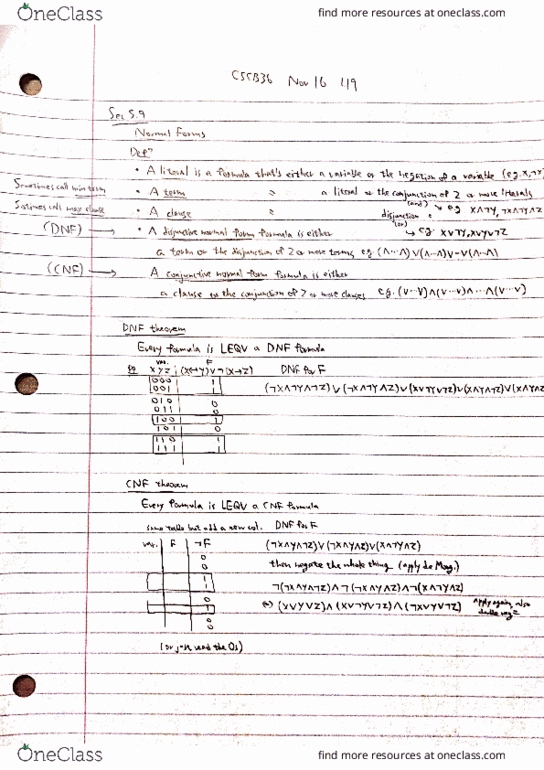 OneClass
find more resources at oneclass.com
CSCB36 Nov 16 L19
Sec 5.9
Normal Forms
Def?
• A literal is a formula that's either a variable or the negation of a variable (e.g. x, ¬x)
Sometimes call min term • A term " a literal or the conjunction of 2 or more literals
(and) → e.g. x∧¬y, ¬x∧¬y∧z
Sometimes call max clause • A clause " disjunction "
(or) → e.g. x∨¬y, x∨y∨¬z
(DNF) → • A disjunctive normal form formula is either
a term or the disjunction of 2 or more terms, e.g. (∧...∧)∨(∧...∧)∨...∨(∧...∧)
(CNF) → A conjunctive normal form formula is either
a clause or the conjunction of 2 or more clauses e.g. (∨...∨)∧(∨...∨)∧...∧(∨...∨)
DNF theorem
Every formula is LEQV a DNF formula
var. F
eg x y z (x↔y)∨¬(x→z) DNF for F
000 1
001 1 (¬x∧¬y∧¬z)∨(¬x∧¬y∧z)∨(x∧¬y∧¬z)∨(x∧y∧¬z)∨(x∧y∧z)
010 0
011 0
100 1
101 0
110 1
111 1
CNF theorem
Every formula is LEQV a CNF formula
same table but add a new col. DNF for F
var. F ¬F (¬x∧y∧¬z)∨(¬x∧y∧z)∨(x∧¬y∧z)
0
0 then negate the whole thing (apply de Morg.)
1
1 ¬(¬x∧y∧¬z)∧¬(¬x∧y∧z)∧¬(x∧¬y∧z)
0
1 ⇔ (x∨¬y∨z)∧(x∨¬y∨¬z)∧(¬x∨y∨¬z) Apply again, also double neg
0
0
(or just read the 0s)
OneClass
find more resources at oneclass.com